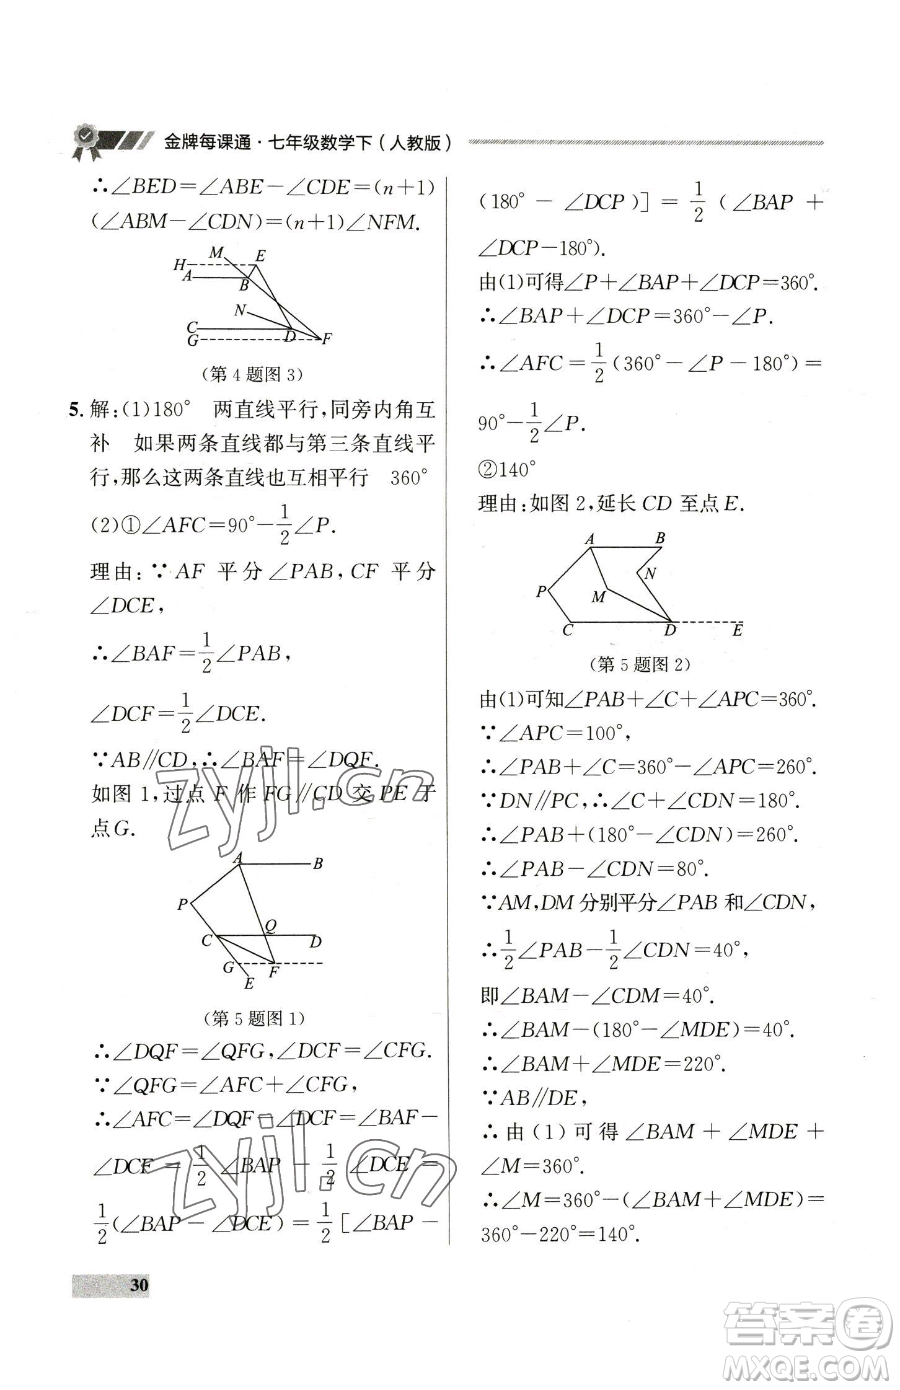 金牌每课通·七年级数学下(人教版)
∴∠BED=∠ABE-∠CDE=(n+1)
(∠ABM-∠CDN)=(n+1)∠NFM.
M
E
H
A
B
N
C
D
G
F
(第4题图3)
5. 解:(1)180° 两直线平行,同旁内角互
补 如果两条直线都与第三条直线平
行,那么这两条直线也互相平行 360°
(2)①∠AFC=90°-1/2∠P.
理由:∵AF 平分∠PAB,CF 平分
∠DCE,
∴∠BAF=1/2∠PAB,
∠DCF=1/2∠DCE.
∵AB∥CD,∴∠BAF=∠DQF.
如图1,过点 F 作 FG∥CD 交 PE 于
点G.
A
B
P
C
Q
D
G
F
E
(第5题图1)
∴∠DQF=∠QFG,∠DCF=∠CFG.
∵∠QFG=∠AFC+∠CFG,
∴∠AFC=∠DQF-∠DCF=∠BAF-
∠DCF=1/2∠BAP-1/2∠DCE=
1/2(∠BAP-∠DCE)=1/2[∠BAP-
30
(180°-∠DCP)]=1/2(∠BAP+
∠DCP-180°).
由(1)可得∠P+∠BAP+∠DCP=360°.
∴∠BAP+∠DCP=360°-∠P.
∴∠AFC=1/2(360°-∠P-180°)=
90°-1/2∠P.
②140°
理由:如图2,延长 CD 至点 E.
A
B
N
P
M
C
D
E
(第5题图2)
由(1)可知∠PAB+∠C+∠APC=360°.
∵∠APC=100°,
∴∠PAB+∠C=360°-∠APC=260°.
∵DN∥PC,∴∠C+∠CDN=180°.
∴∠PAB+(180°-∠CDN)=260°.
∴∠PAB-∠CDN=80°.
∵AM,DM 分别平分∠PAB 和∠CDN,
∴1/2∠PAB-1/2∠CDN=40°,
即∠BAM-∠CDM=40°.
∴∠BAM-(180°-∠MDE)=40°.
∴∠BAM+∠MDE=220°.
∵AB∥DE,
∴由(1)可得∠BAM+∠MDE+
∠M=360°.
∴∠M=360°-(∠BAM+∠MDE)=
360°-220°=140°.
zyjl.cn
zyjl.cn
答案圈
MXQE.COM